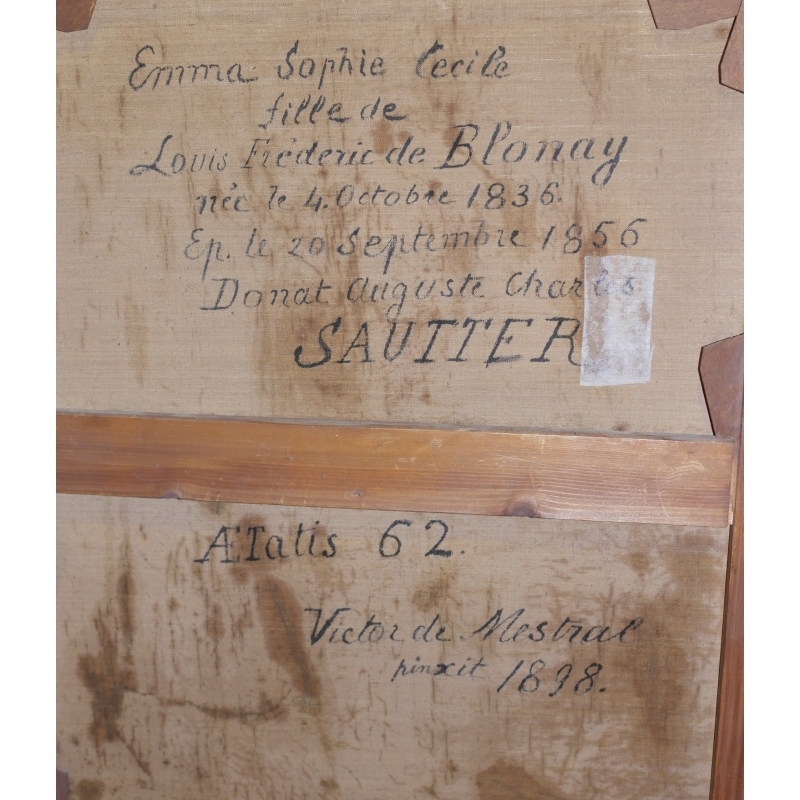 Emma Sophie Cecile
fille de
Louis Fréderic de Blonay
née le 4. Octobre 1836.
Ep. le 20 Septembre 1856
Donat Auguste Charles
SAUTTER
Ætatis 62.
Victor de Mestral
pinxit 1898.